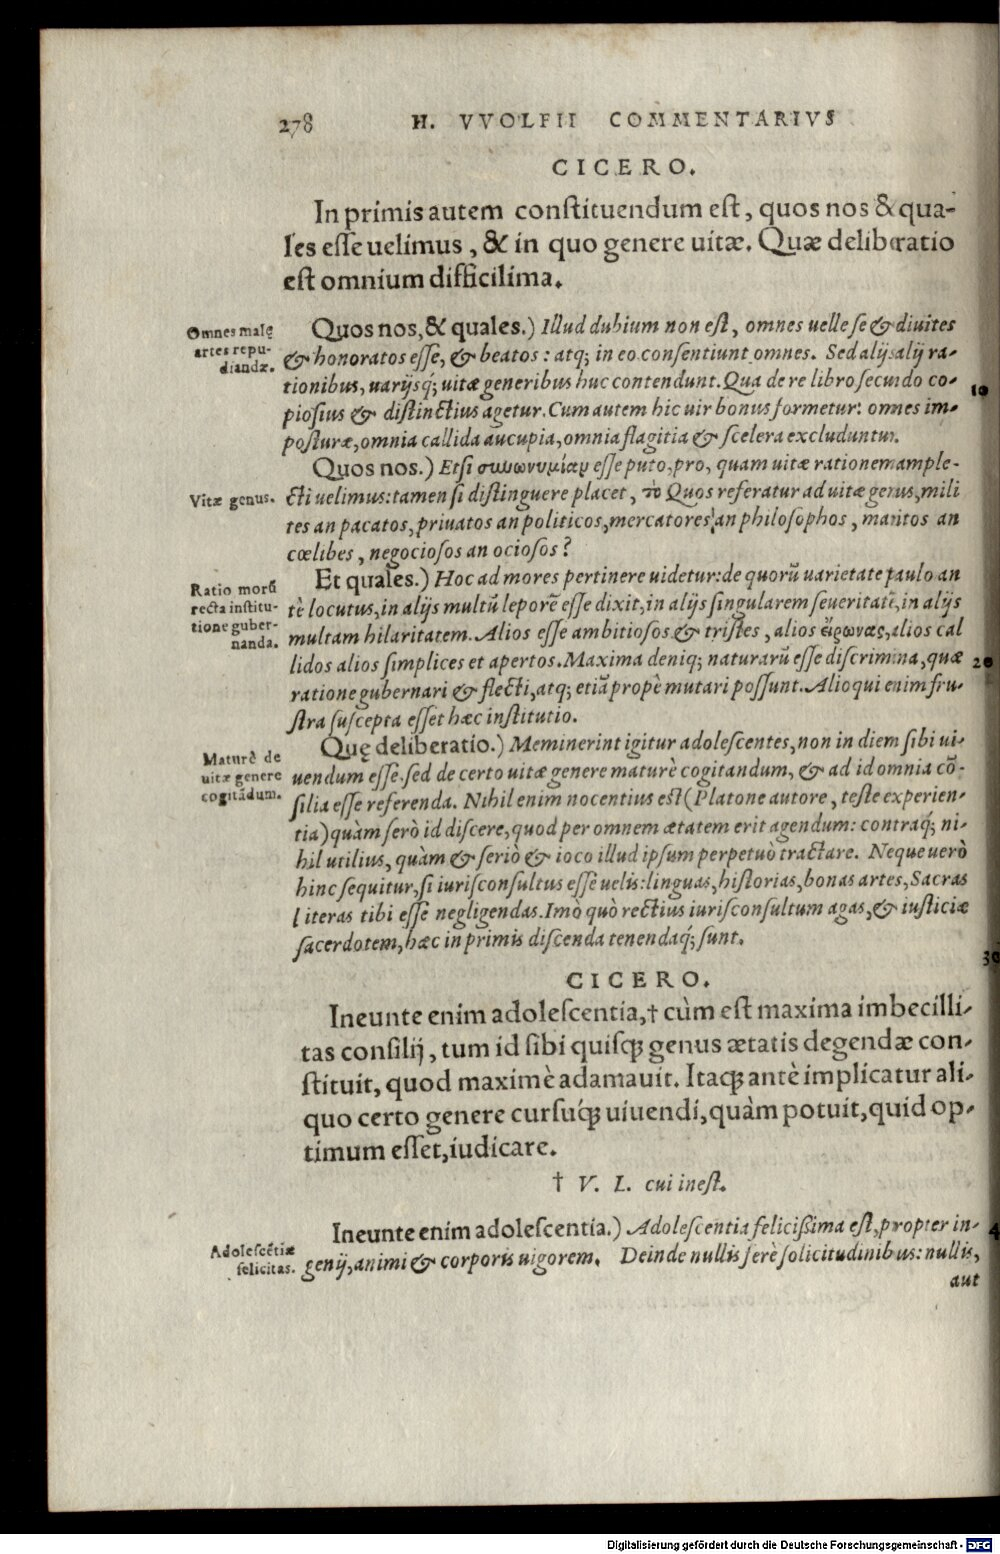 278 H. VVOLFII COMMENTARIVS
CICERO.
In primis autem constituendum est, quos nos & qua-
les esse uelimus, & in quo genere uitæ. Quæ deliberatio
est omnium difficilima.
Omnes malę
artes repu-
diandæ.
Quos nos, & quales.) Illud dubium non est, omnes uelle se & diuites
& honoratos esse, & beatos: atq; in eo consentiunt omnes. Sed alij alij ra-
tionibus, uarijsq́; uitæ generibus huc contendunt. Qua de re libro secundo co-
10
piosius & distinctius agetur. Cum autem hic uir bonus formetur: omnes im-
posturæ, omnia callida aucupia, omnia flagitia & scelera excluduntur.
Quos nos.) Etsi συνωνυμίαν esse puto, pro, quam uitæ rationem ample-
Vitæ genus.
cti uelimus: tamen si distinguere placet, τὸ Quos referatur ad uitæ genus, mili
tes an pacatos, priuatos an politicos, mercatores an philosophos, maritos an
cœlibes, negociosos an ociosos?
Ratio morũ
recta institu-
tione guber-
nanda.
Et quales.) Hoc ad mores pertinere uidetur: de quorũ uarietate paulo an
tè locutus, in alijs multũ leporẽ esse dixit, in alijs singularem seueritatẽ, in alijs
multam hilaritatem. Alios esse ambitiosos & tristes, alios εἴρωνας, alios cal
lidos alios simplices et apertos. Maxima deniq; naturarũ esse discrimina, quæ
20
ratione gubernari & flecti, atq; etiã propè mutari possunt. Alioqui enim fru-
stra suscepta esset hæc institutio.
Maturè de
uitæ genere
cogitãdum.
Quę deliberatio.) Meminerint igitur adolescentes, non in diem sibi ui-
uendum esse. sed de certo uitæ genere maturè cogitandum, & ad id omnia cõ-
silia esse referenda. Nihil enim nocentius est (Platone autore, teste experien-
tia) quàm serò id discere, quod per omnem ætatem erit agendum: contraq́; ni-
hil utilius, quàm & seriò & ioco illud ipsum perpetuò tractare. Neque uerò
hinc sequitur, si iurisconsultus esse uelis: linguas, historias, bonas artes, Sacras
literas tibi esse negligendas. Imò quò rectius iurisconsultum agas, & iusticiæ
sacerdotem, hæc in primis discenda tenendaq́; sunt.
30
CICERO.
Ineunte enim adolescentia, † cùm est maxima imbecilli-
tas consilij, tum id sibi quisq; genus ætatis degendæ con-
stituit, quod maximè adamauit. Itaq; antè implicatur ali-
quo certo genere cursuq́; uiuendi, quàm potuit, quid op-
timum esset, iudicare.
† V. L. cui inest.
Adolescẽtiæ
felicitas.
Ineunte enim adolescentia.) Adolescentia felicißima est, propter in-
4
genij, animi & corporis uigorem. Deinde nullis ferè solicitudinibus: nullis,
aut
Digitalisierung gefördert durch die Deutsche Forschungsgemeinschaft - DFG